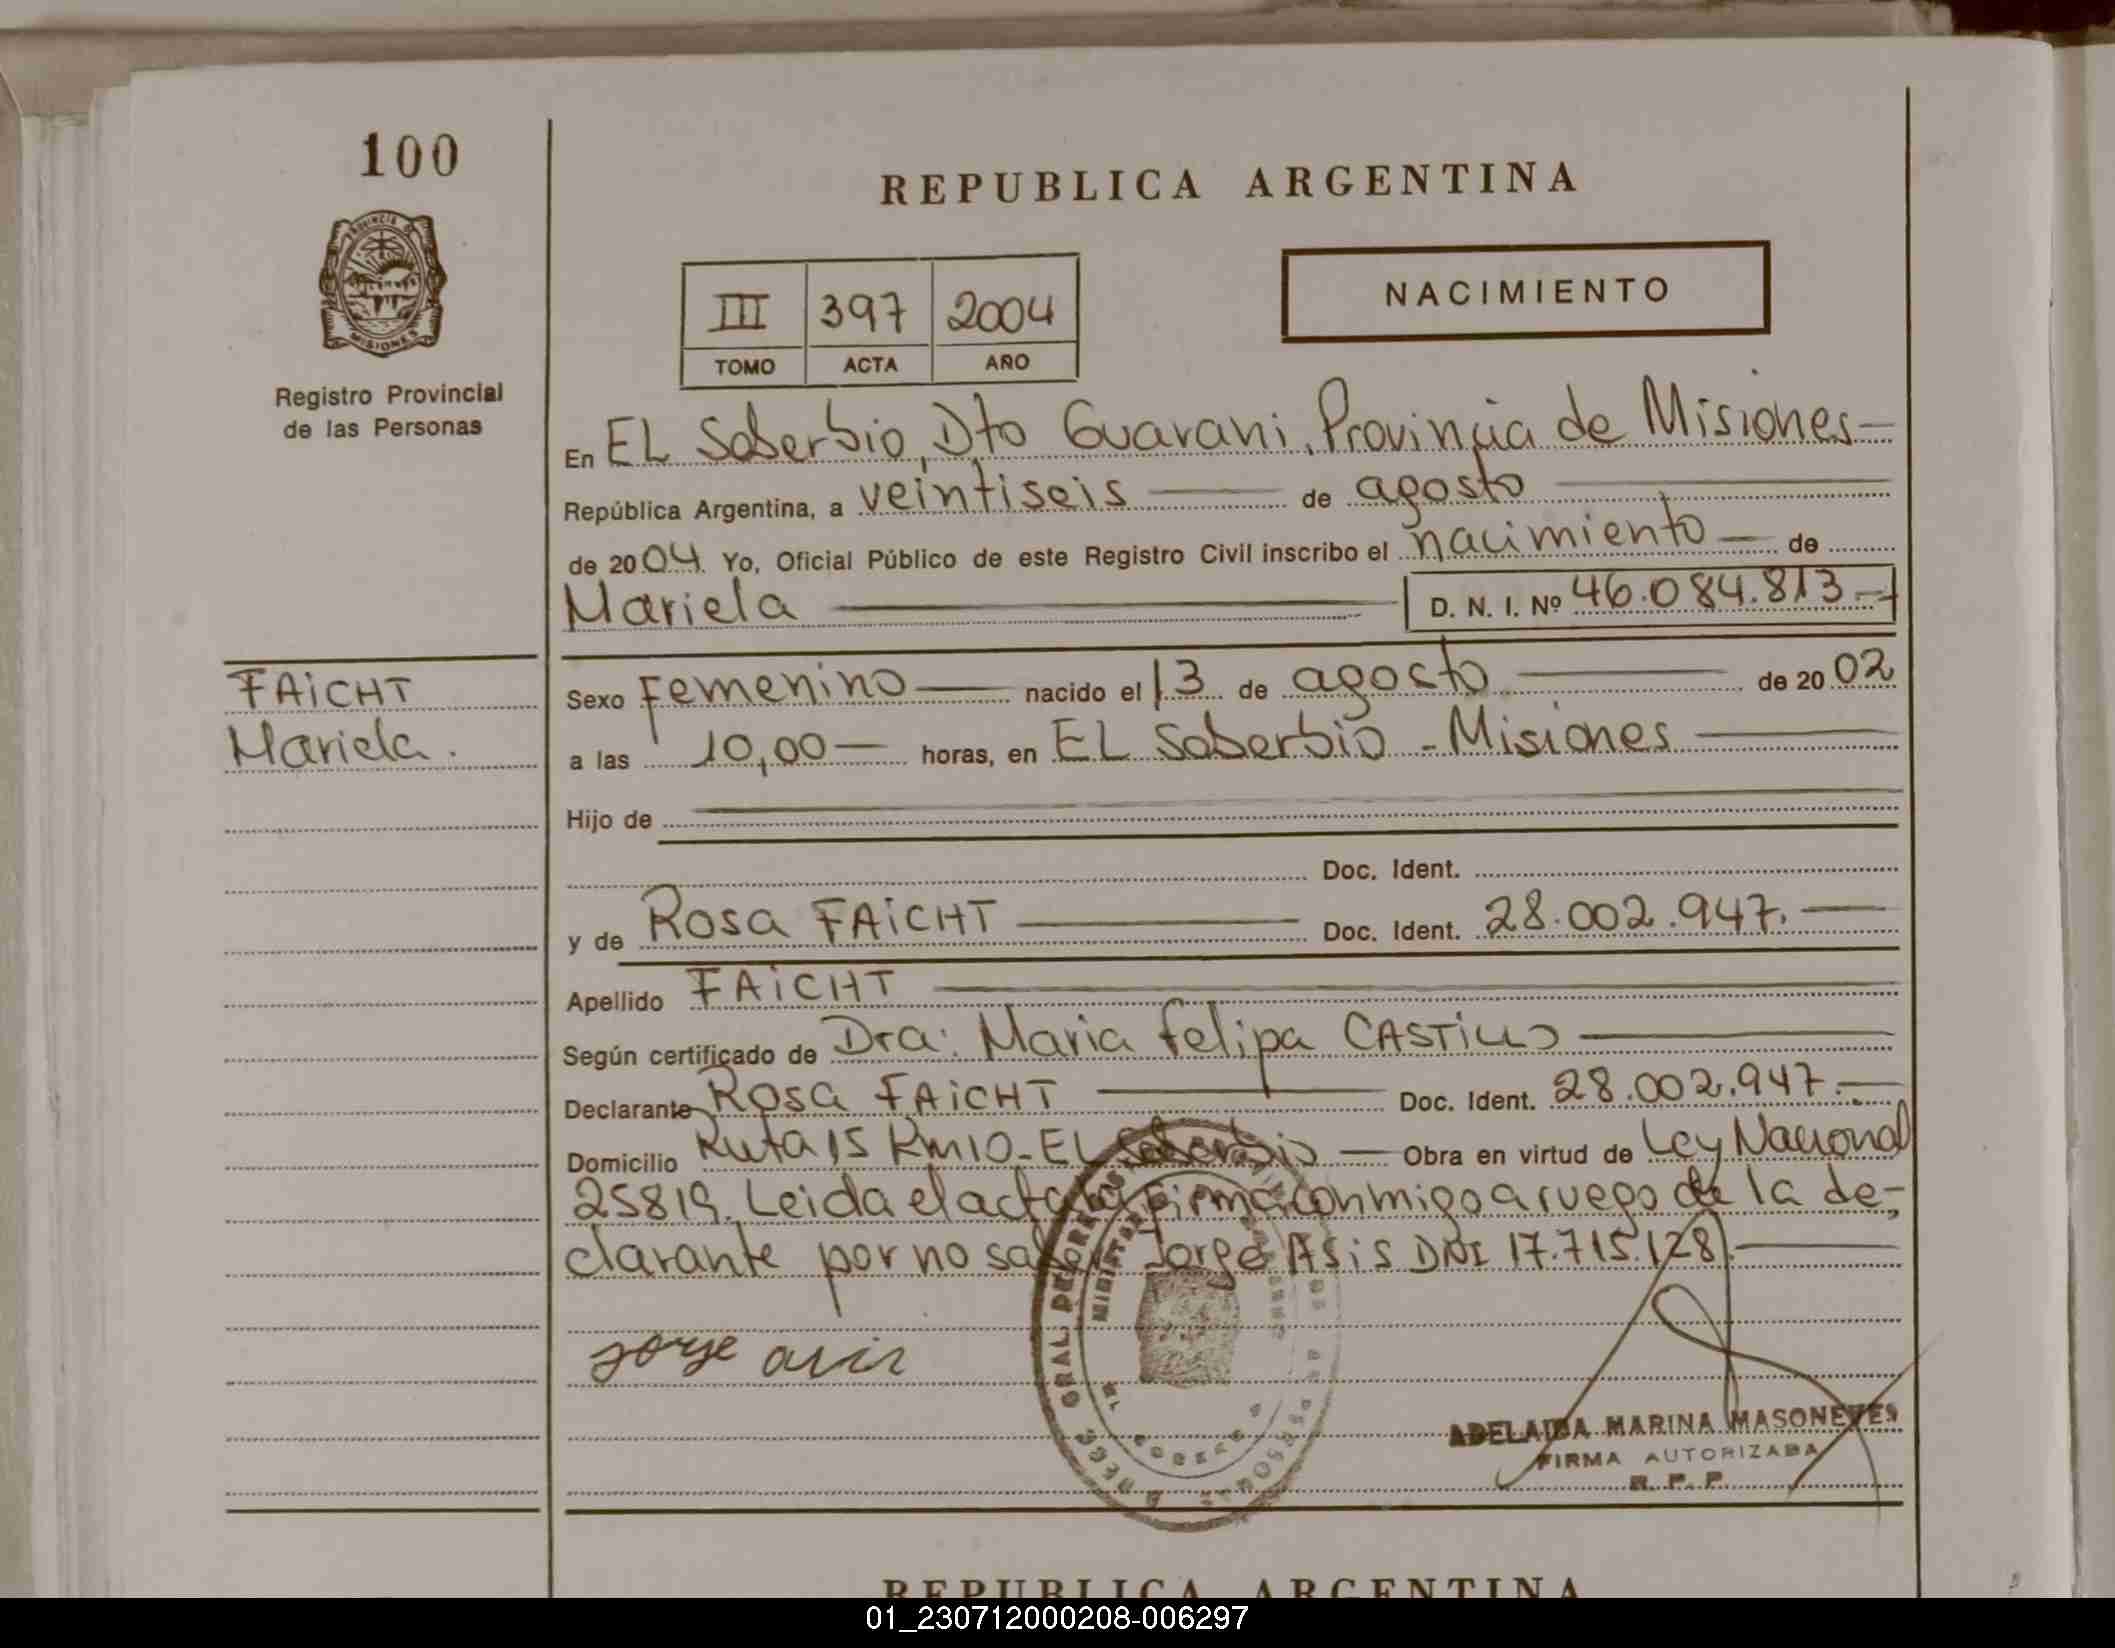 100
REPUBLICA ARGENTINA
PROVINCIA DE
MISIONES
Registro Provincial
de las Personas
III 397 2004
TOMO ACTA AÑO
NACIMIENTO
En EL Soberbio, Dto Guarani, Provincia de Misiones
República Argentina, a veintiseis de agosto
de 2004. Yo, Oficial Público de este Registro Civil inscribo el nacimiento de
Mariela D. N. I. Nº 46.084.813.-
FAiCHT
Mariela.
Sexo Femenino nacido el 13 de agosto de 2002
a las 10,00 horas, en EL Soberbio - Misiones
Hijo de
Doc. Ident.
y de Rosa FAiCHT Doc. Ident. 28.002.947.
Apellido FAiCHT
Según certificado de Dra: Maria Felipa CASTiLLO
Declarante Rosa FAiCHT Doc. Ident. 28.002.947.-
Domicilio Ruta 15 Km 10 - EL Soberbio Obra en virtud de Ley Nacional
25819. Leida el acta la firma conmigo a ruego de la de-
clarante por no saber Jorge Asis DNI 17.715.128).
Jorge asis
ADELAIDA MARINA MASONEVES
FIRMA AUTORIZADA
R. P. P.
REPUBLICA ARGENTINA
01_230712000208-006297